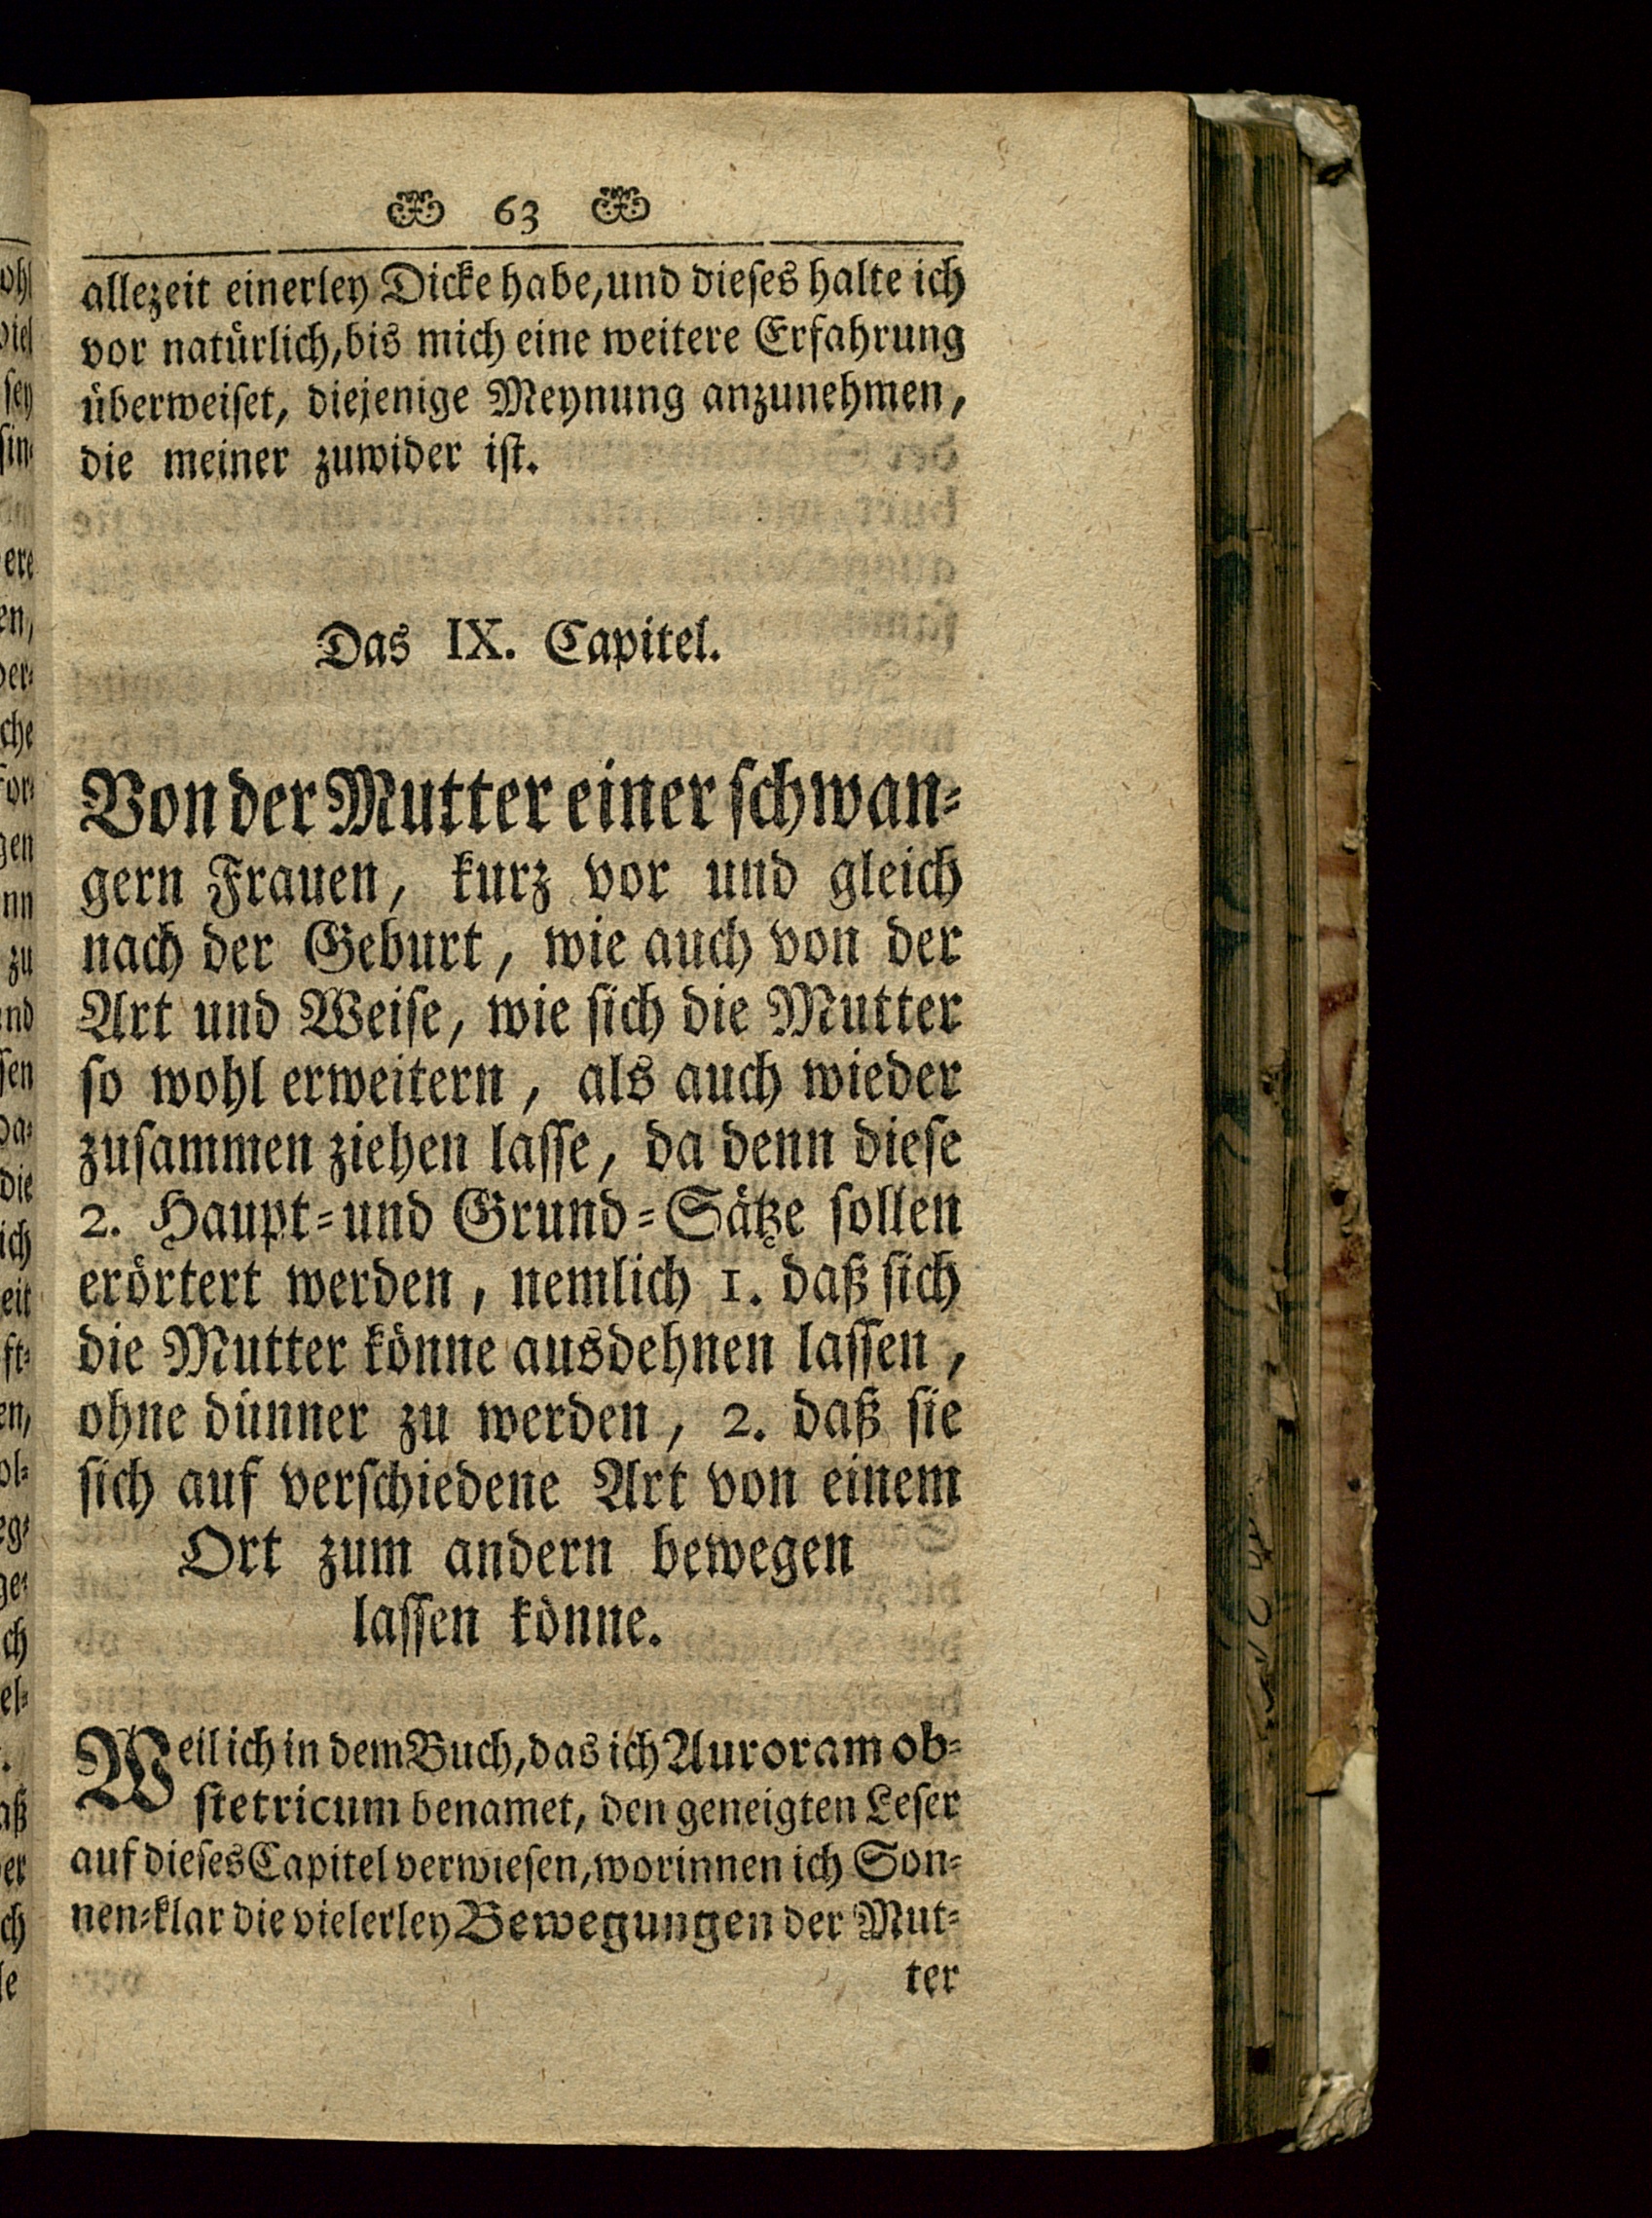 63
allezeit einerley Dicke habe, und dieses halte ich
vor natürlich, bis mich eine weitere Erfahrung
überweiset, diejenige Meynung anzunehmen,
die meiner zuwider ist.
Das IX. Capitel.
Von der Mutter einer schwan-
gern Frauen, kurz vor und gleich
nach der Geburt, wie auch von der
Art und Weise, wie sich die Mutter
so wohl erweitern, als auch wieder
zusammen ziehen lasse, da denn diese
2. Haupt- und Grund-Sätze sollen
erörtert werden, nemlich 1. daß sich
die Mutter könne ausdehnen lassen,
ohne dünner zu werden, 2. daß sie
sich auf verschiedene Art von einem
Ort zum andern bewegen
lassen könne.
Weil ich in dem Buch, das ich Auroram ob-
stetricum benamet, den geneigten Leser
auf dieses Capitel verwiesen, worinnen ich Son-
nen-klar die vielerley Bewegungen der Mut-
ter